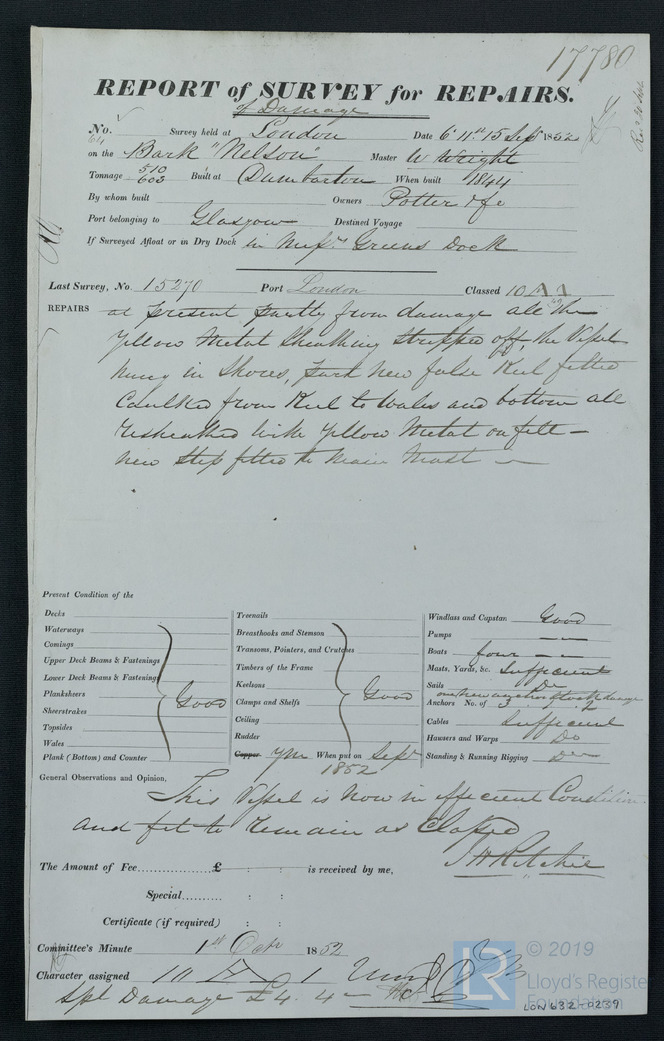 17780
REPORT of SURVEY for REPAIRS.
of Damage
No. 64 Survey held at London Date 6th 11th 15 Sept 1852
on the Bark "Nelson" Master W Wright
Tonnage 510 603 Built at Dumbarton When built 1844
By whom built Owners Potter & Co
Port belonging to Glasgow Destined Voyage
If Surveyed Afloat or in Dry Dock in Messrs Greens Dock
Last Survey, No. 15270 Port London Classed 10 A 1
REPAIRS at present partly from damage all the
Yellow Metal Sheathing stripped off, the Vessel
hung in Shores, part new false Keel fitted
Caulked from Keel to Wales and bottom all
resheathed with Yellow Metal on felt —
new Step fitted to Main Mast —
Present Condition of the
Decks
Waterways
Comings
Upper Deck Beams & Fastenings
Lower Deck Beams & Fastenings
Planksheers Good
Sheerstrakes
Topsides
Wales
Plank (Bottom) and Counter
Treenails
Breasthooks and Stemson
Transoms, Pointers, and Crutches
Timbers of the Frame
Keelsons Good
Clamps and Shelfs
Ceiling
Rudder
Copper YM When put on Sept
1852
Windlass and Capstan Good
Pumps — —
Boats four — —
Masts, Yards, &c. Sufficient
Sails Do
Anchors No. of 3
Cables Sufficient
Hawsers and Warps Do
Standing & Running Rigging Do
General Observations and Opinion,
This Vessel is now in efficient Condition
and fit to remain as Classed
J H Ritchie
The Amount of Fee £ : : is received by me,
Special : :
Certificate (if required) : :
Committee's Minute 1st Octr 1852
Character assigned A 1
Spl Damage £4. 4 —
LR
© 2019
Lloyd's Register
Foundation
LON 632-0239